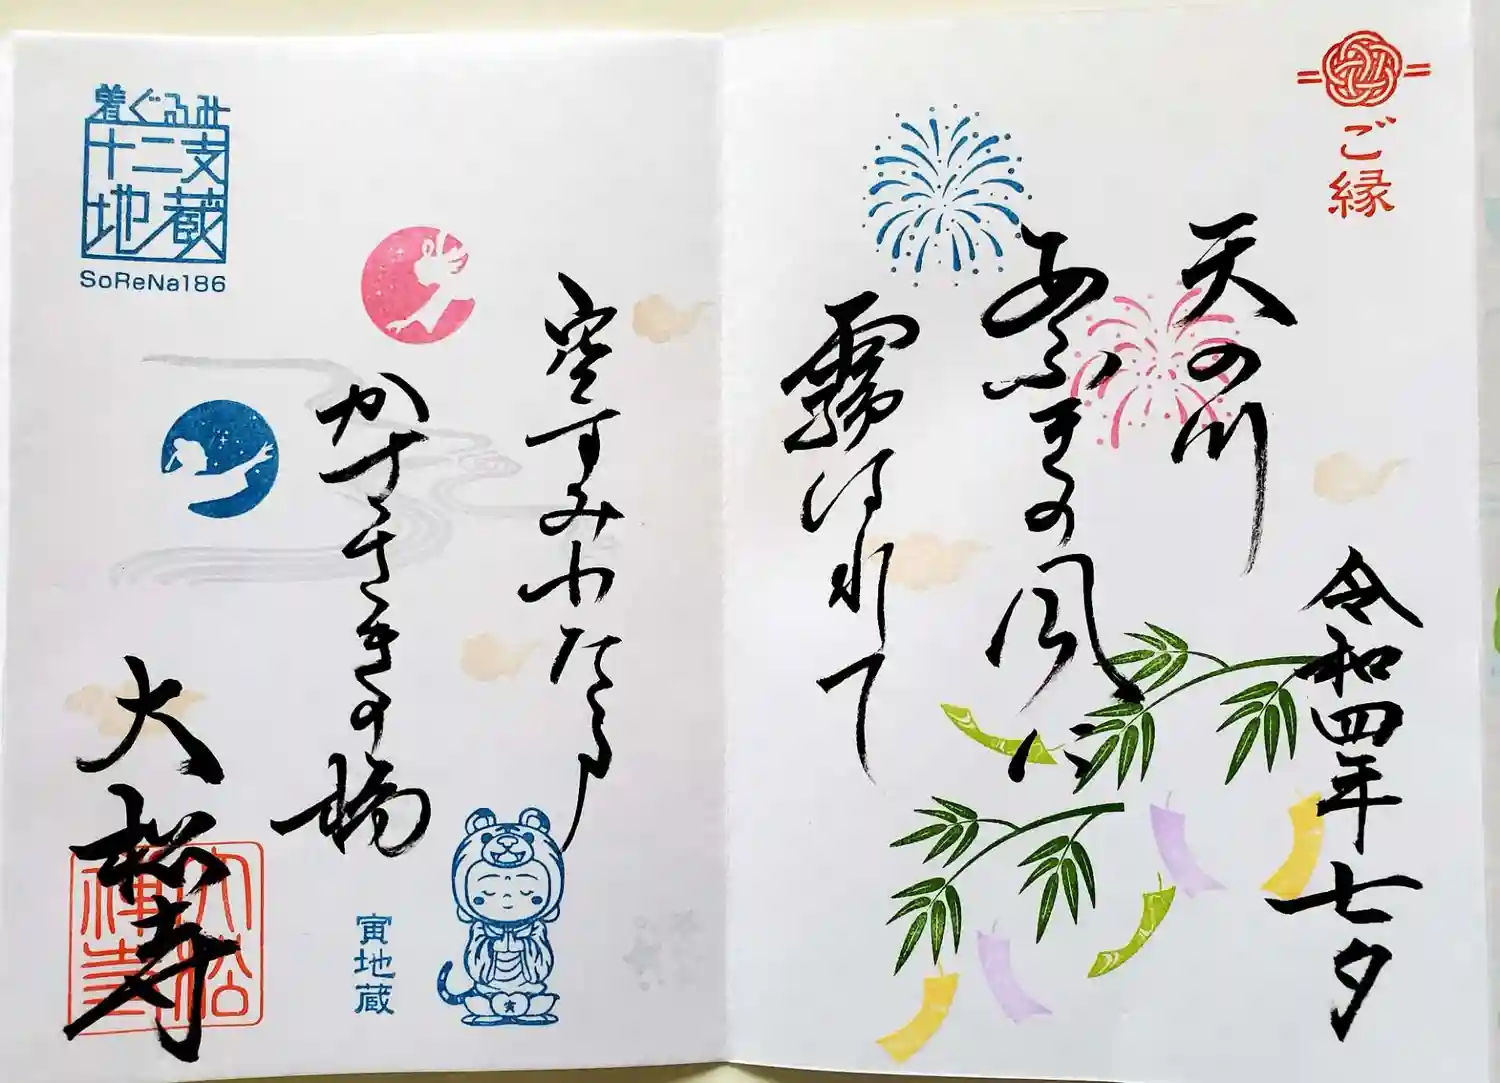 ご縁
令和四年七夕
天の川
あふきの風に
霧はれて
空すみわたる
かささきの橋
大松寺
着ぐるみ
十二支
地蔵
SoReNa186
寅地蔵
寅
大松
禅寺